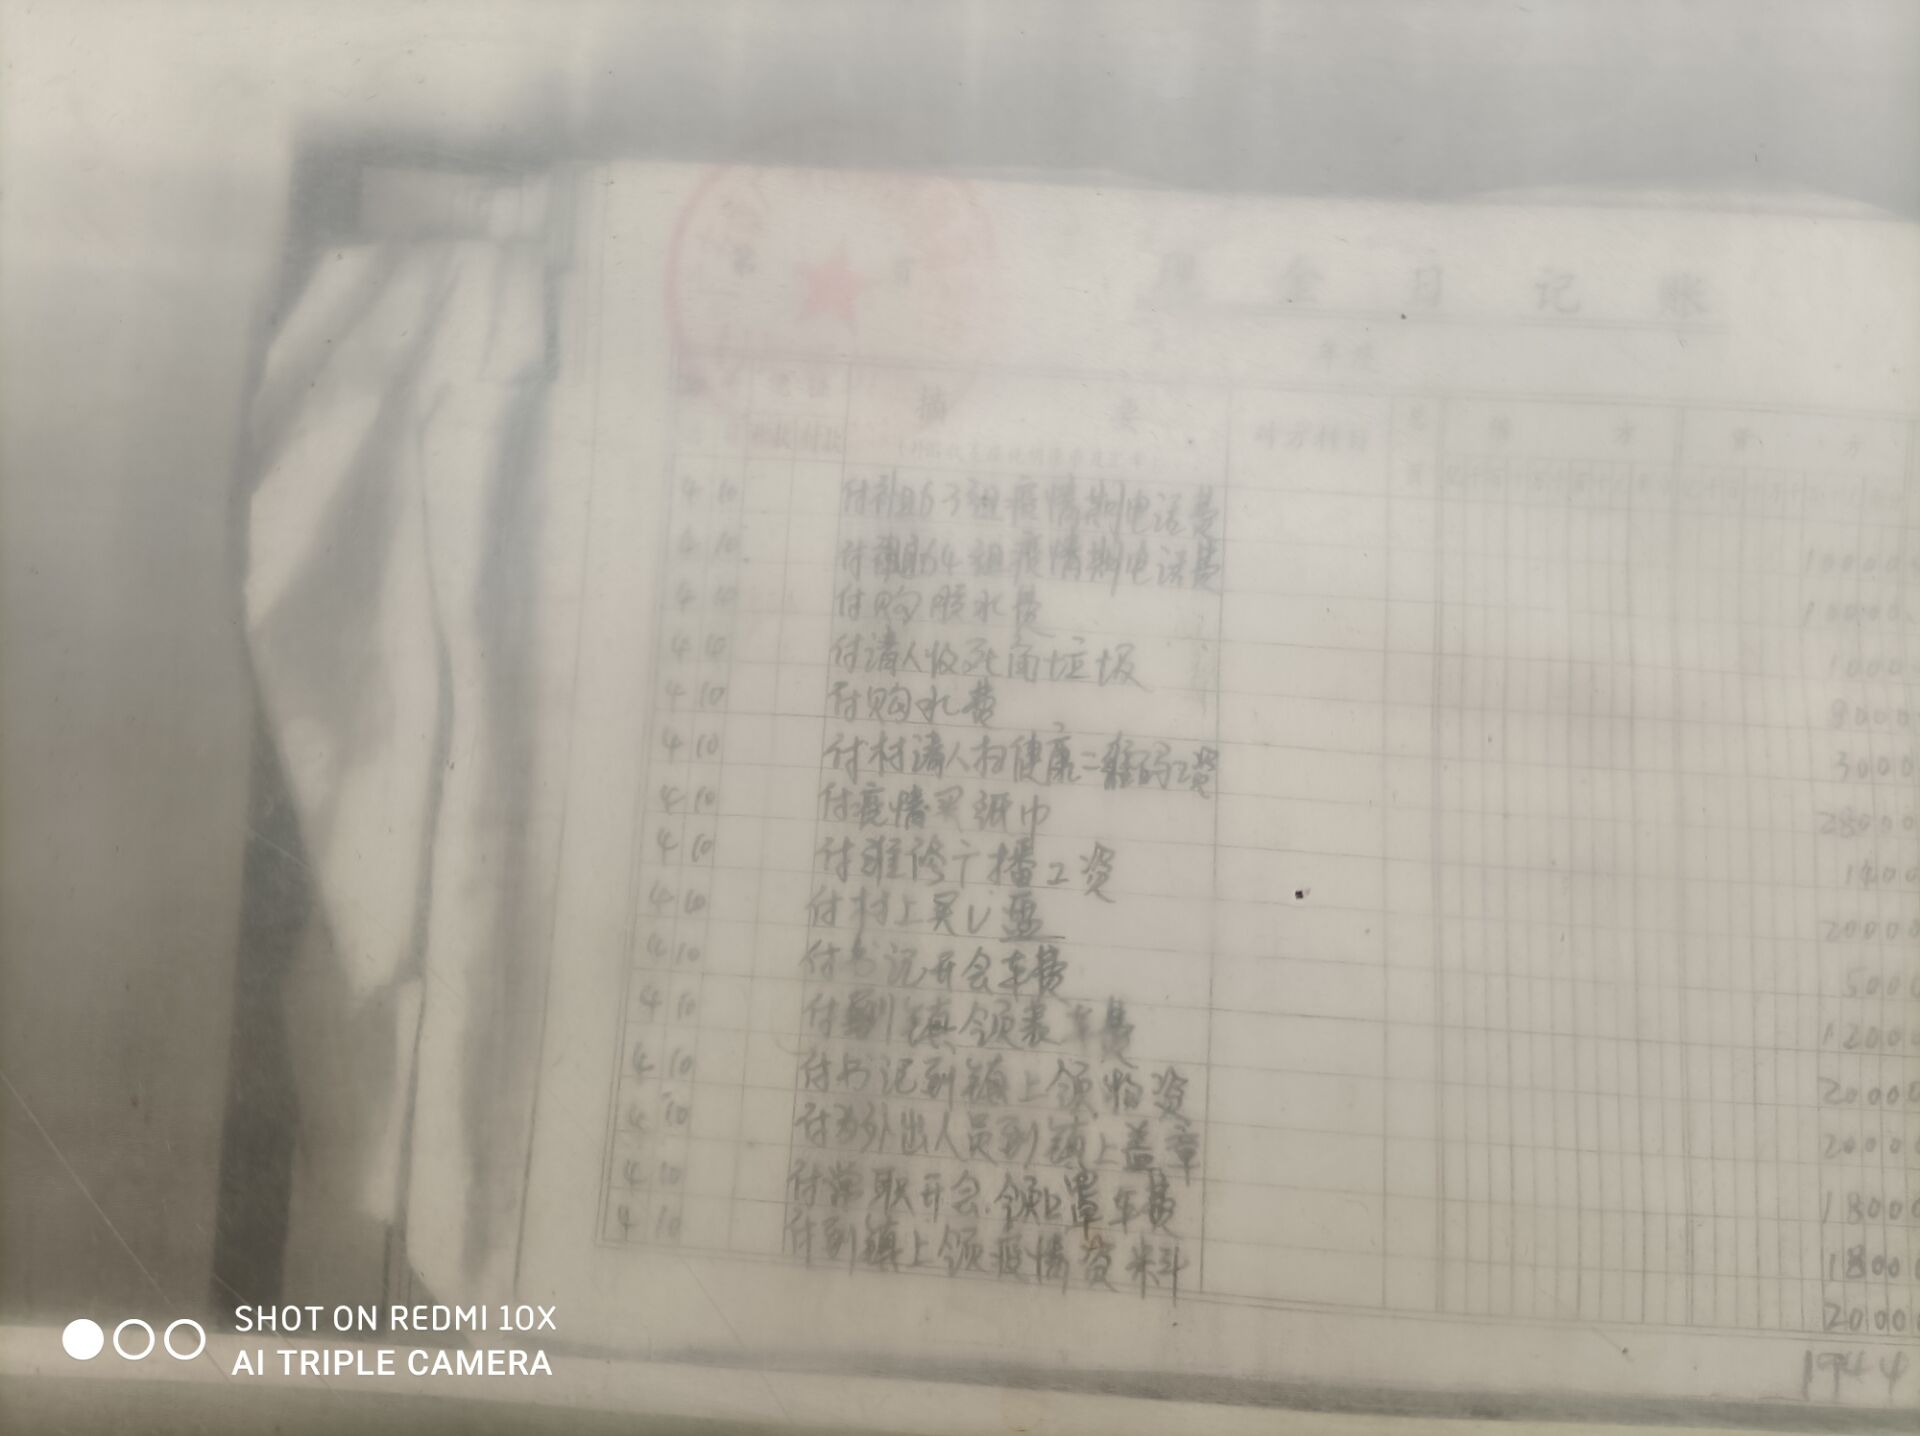 现 金 日 记 账
年度
摘 要 对方科目 借 方 贷 方
收款 付款
4 10 付补助3组疫情期电话费 10000
4 10 付补助4组疫情期电话费 10000
4 10 付购胶水费 1000
4 10 付请人收死角垃圾 8000
4 10 付购水费 3000
4 10 付村请人扫健康二维码工资 28000
4 10 付疫情买纸巾 1400
4 10 付维修广播工资 20000
4 10 付村上买U盘 5000
4 10 付书记开会车费 12000
4 10 付到镇领表车费 20000
4 10 付书记到镇上领物资 20000
4 10 付为外出人员到镇上盖章 18000
4 10 付常职开会.领口罩车费 18000
4 10 付到镇上领疫情资料 20000
1944
SHOT ON REDMI 10X
AI TRIPLE CAMERA